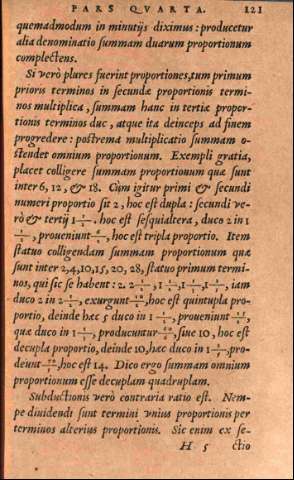 PARS QVARTA. 121
quemadmodum in minutijs diximus: producetur
alia denominatio summam duarum proportionum
complectens.
Si verò plures fuerint proportiones, tum primum
prioris terminos in secundæ proportionis termi-
nos multiplica, summam hanc in tertiæ propor-
tionis terminos duc, atque ita deinceps ad finem
progredere: postrema multiplicatio summam o-
stendet omnium proportionum. Exempli gratia,
placet colligere summam proportionum quæ sunt
inter 6, 12, & 18. Cùm igitur primi & secundi
numeri proportio sit 2, hoc est dupla: secundi ve-
rò & tertij 1 1/2. hoc est sesquialtera, duco 2 in 1
1/2, proueniunt 6/2, hoc est tripla proportio. Item
statuo colligendam summam proportionum quæ
sunt inter 2, 4, 10, 15, 20, 28, statuo primum termi-
nos, qui sic se habent: 2. 2 1/2, 1 1/2, 1 1/3, 1 2/5, iam
duco 2 in 2 1/2, exurgunt 10/2, hoc est quintupla pro-
portio, deinde hæc 5 duco in 1 1/2, proueniunt 15/2,
quæ duco in 1 1/3, producuntur 60/6, siue 10, hoc est
decupla proportio, deinde 10, hæc duco in 1 2/5, pro-
deunt 70/5, hoc est 14. Dico ergo summam omnium
proportionum esse decuplam quadruplam.
Subductionis verò contraria ratio est. Nem-
pe diuidendi sunt termini vnius proportionis per
terminos alterius proportionis. Sic enim ex se-
H 5 ctio